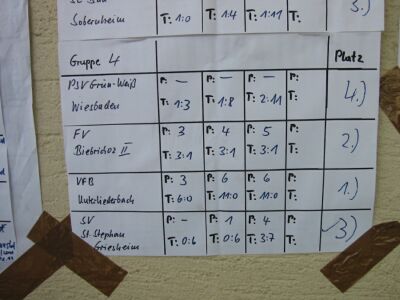 Sobernheim T: 1:0 T: 1:4 T: 1:11 T: 3.)
Gruppe 4 Platz
PSV Grün-Weiß P: — P: — P: — P:
Wiesbaden T: 1:3 T: 1:8 T: 2:11 T: 4.)
FV P: 3 P: 4 P: 5 P:
Biebrich02 II T: 3:1 T: 3:1 T: 3:1 T: 2.)
VFB P: 3 P: 6 P: 6 P:
Unterliederbach T: 6:0 T: 11:0 T: 11:0 T: 1.)
SV P: - P: 1 P: 4 P:
St. Stephan T: 0:6 T: 0:6 T: 3:7 T: 3.)
Griesheim